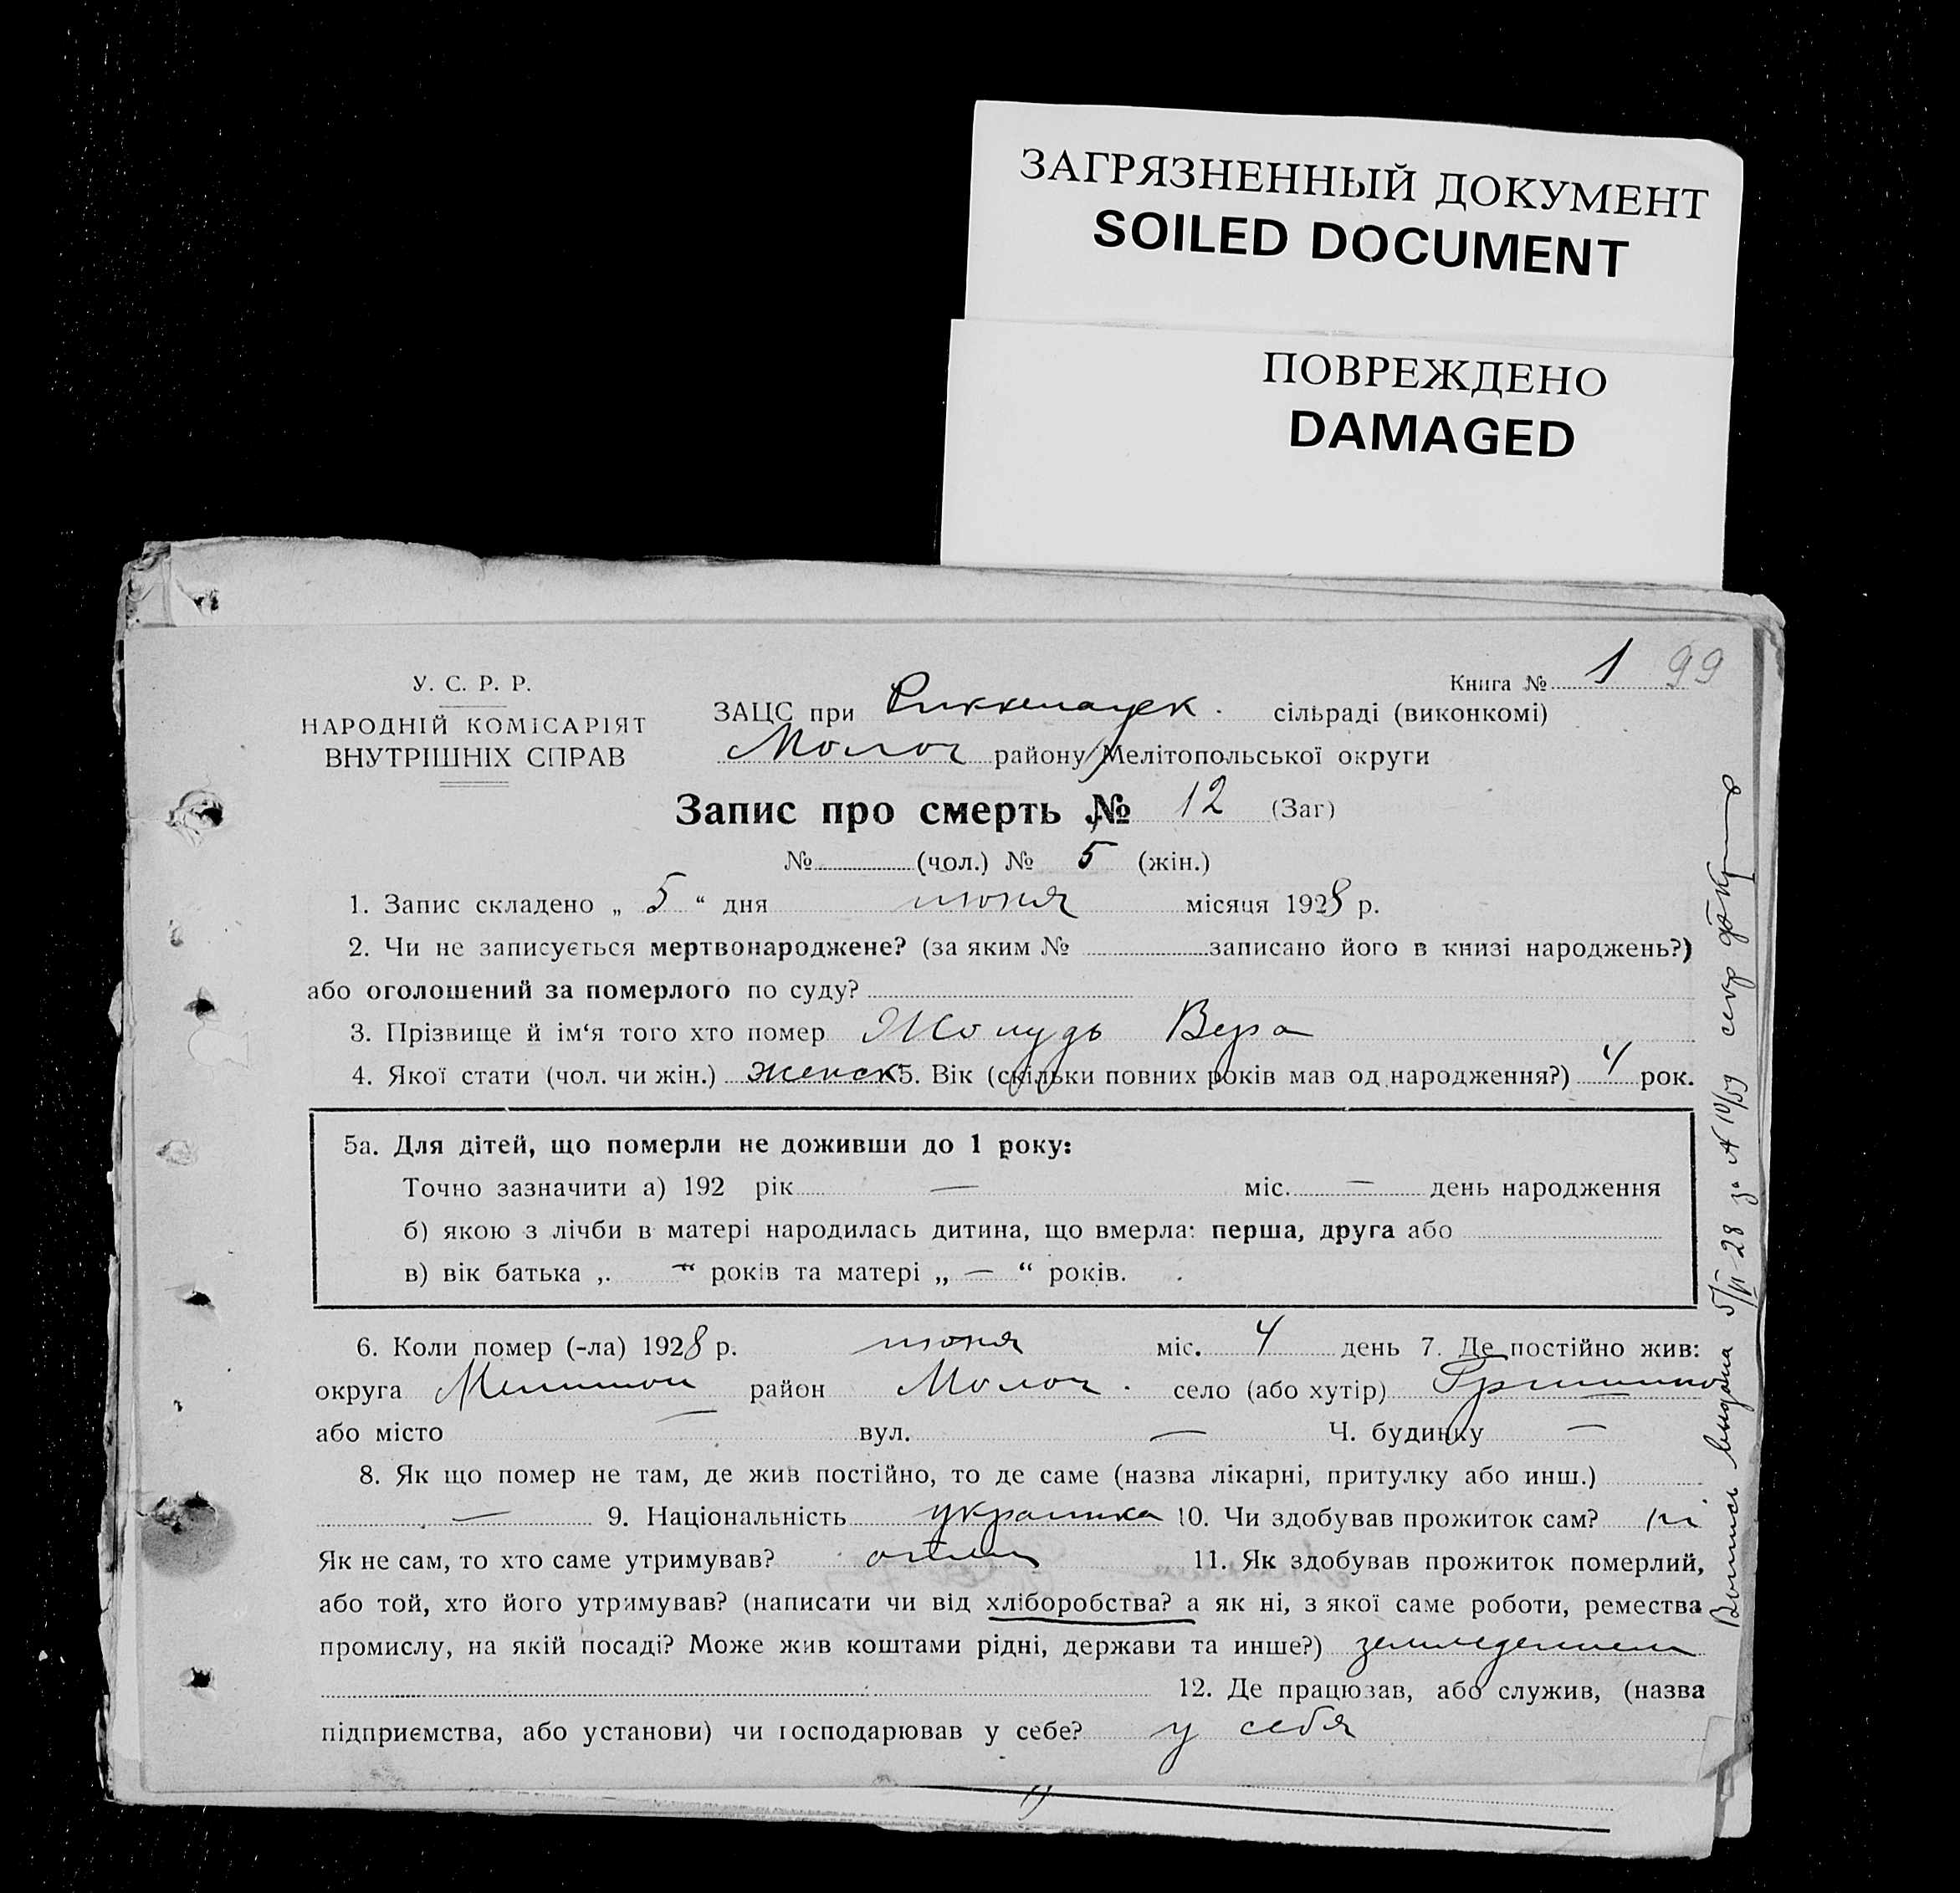 ЗАГРЯЗНЕННЫЙ ДОКУМЕНТ
SOILED DOCUMENT
ПОВРЕЖДЕНО
DAMAGED
Книга № 1 99
У. С. Р. Р.
НАРОДНІЙ КОМІСАРІЯТ
ВНУТРІШНІХ СПРАВ
ЗАЦС при сільраді (виконкомі)
Молоч району Мелітопольської округи
Запис про смерть № 12 (Заг)
№ (чол.) № 5 (жін.)
1. Запис складено „ 5 “ дня июня місяця 1928 р.
2. Чи не записується мертвонароджене? (за яким № записано його в книзі народжень?)
або оголошений за померлого по суду?
3. Прізвище й ім‘я того хто помер Жолудь Вера
4. Якої стати (чол. чи жін.) женск 5. Вік (скільки повних років мав од народження?) 4 рок.
5а. Для дітей, що померли не доживши до 1 року:
Точно зазначити а) 192 рік — міс. — день народження
б) якою з лічби в матері народилась дитина, що вмерла: перша, друга або
в) вік батька „ — “ років та матері „ — “ років.
6. Коли помер (-ла) 1928 р. июня міс. 4 день 7. Де постійно жив:
округа Мелитоп район Молоч. село (або хутір)
або місто — вул. — Ч. будинку —
8. Як що помер не там, де жив постійно, то де саме (назва лікарні, притулку або инш.)
— 9. Національність украинка 10. Чи здобував прожиток сам? ні
Як не сам, то хто саме утримував? отец 11. Як здобував прожиток померлий,
або той, хто його утримував? (написати чи від хліборобства? а як ні, з якої саме роботи, ремества
промислу, на якій посаді? Може жив коштами рідні, держави та инше?) земледелием
12. Де працював, або служив, (назва
підприємства, або установи) чи господарював у себе? у себя
выдана 5/VI-28 за №